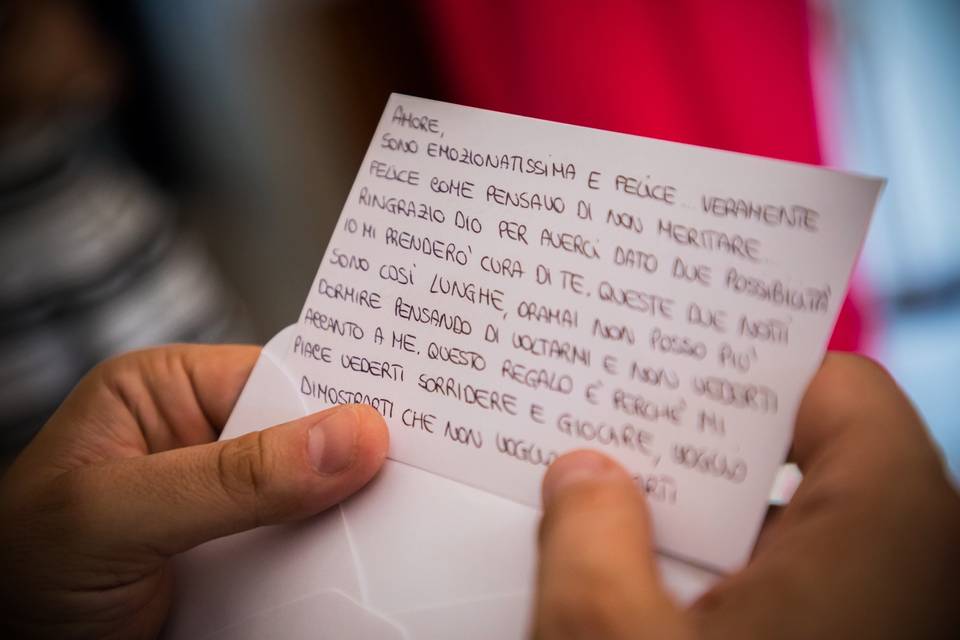 AMORE,
SONO EMOZIONATISSIMA E FELICE... VERAMENTE
FELICE COME PENSAVO DI NON MERITARE...
RINGRAZIO DIO PER AVERCI DATO DUE POSSIBILITÀ
IO MI PRENDERÒ CURA DI TE. QUESTE DUE NOTTI
SONO COSÌ LUNGHE, ORAMAI NON POSSO PIÙ
DORMIRE PENSANDO DI VOLTARMI E NON VEDERTI
ACCANTO A ME. QUESTO REGALO È PERCHÈ MI
PIACE VEDERTI SORRIDERE E GIOCARE, VOGLIO
DIMOSTRARTI CHE NON